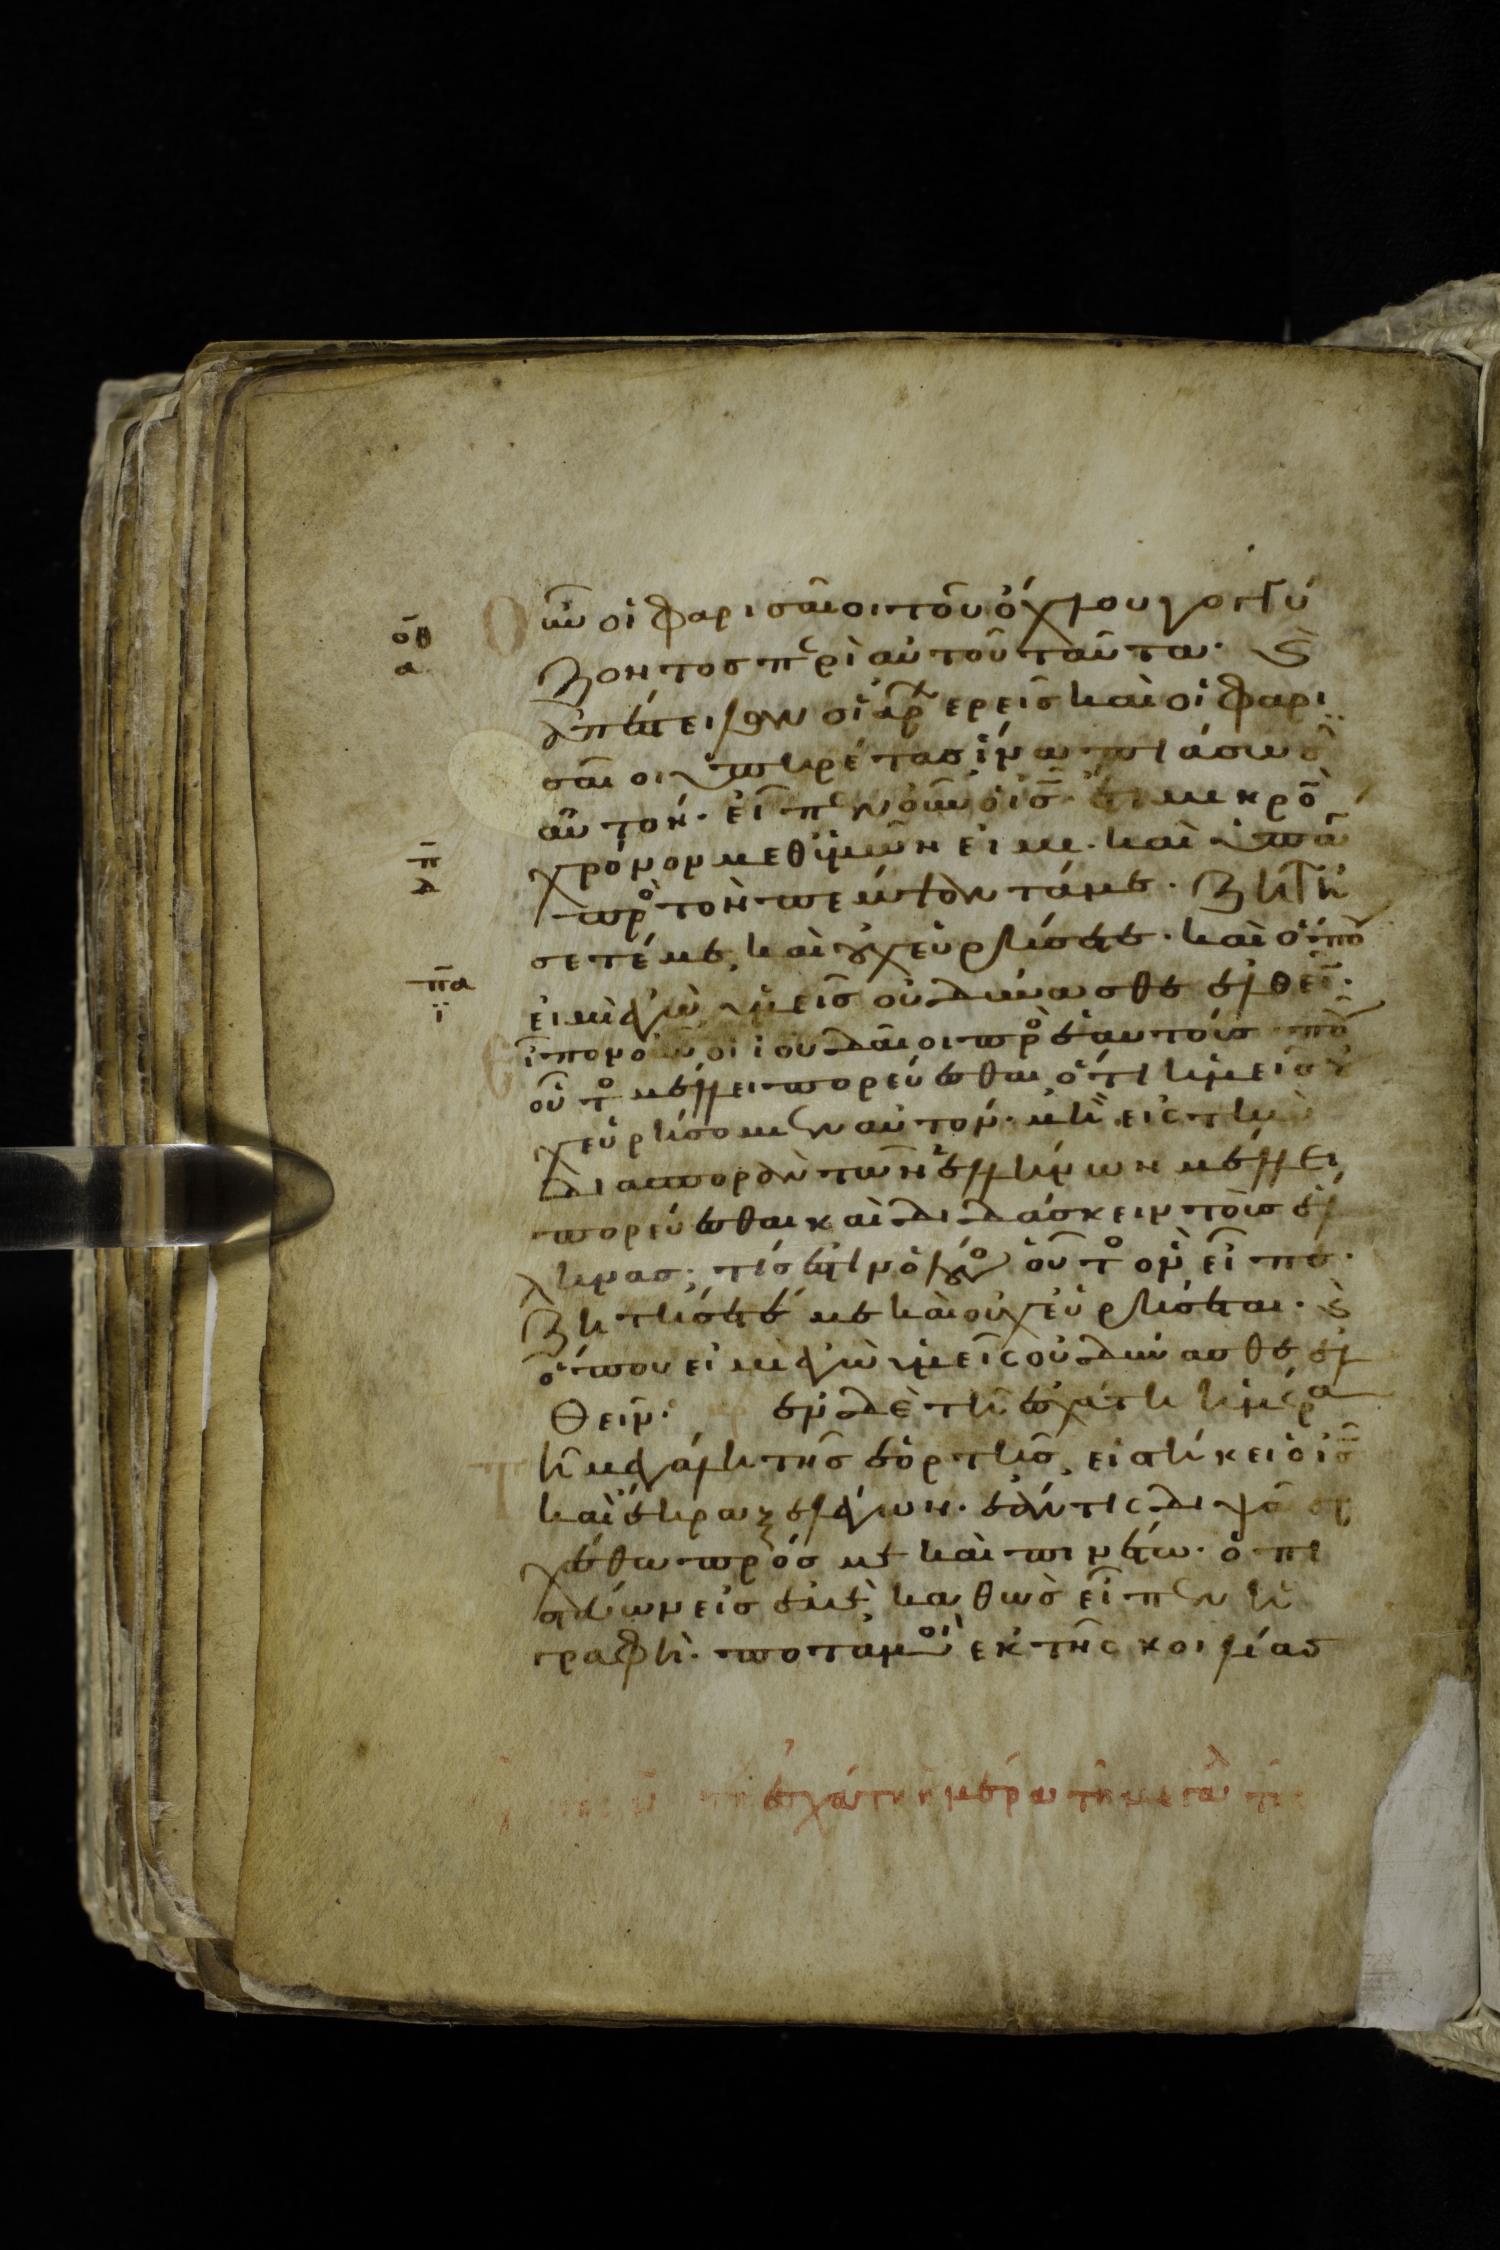 οῦν οἱ φαρισαῖοι τοῦ ὄχλου γογγύ
ζοντος περὶ αὐτοῦ ταῦτα· καὶ
ἀπέστειλαν οἱ ἀρχερεῖς καὶ οἱ φαρι
σαῖοι ὑπηρέτας ἵνα πιάσωσι
αὐτόν· εἶπεν οὖν ὁ ις· ἔτι μικρὸ
χρόνον μεθ ὑμῶν εἰμι· καὶ ὑπά
γω πρὸς τὸν πέμψαντά με· ζητή
σετέ με, καὶ οὐχ εὑρήσετε· καὶ ὅπου
εἰμὶ ἐγὼ ὑμεῖς οὐ δύνασθε ἐλθεῖν·
Εἶπον οὖν οἱ ἰουδαῖοι πρὸς ἑαυτούς ποῦ
οὗτος μέλλει πορεύεσθαι ὅτι ἡμεῖς οὐ
χ εὑρήσομεν αὐτόν· μὴ εἰς τὴν
διασπορὰν τῶν ἑλλήνων μέλλει
πορεύεσθαι καὶ διδάσκειν τοὺς ἕλ
ληνας; τίς ἐστιν ὁ λόγος οὗτος ὃν εἶπε·
ζητήσετέ με καὶ οὐχ εὑρήσεται· καὶ
ὅπου εἰμὶ ἐγὼ ὑμεῖς οὐ δύνασθε ἐλ
θεῖν· ἐν δὲ τῆ ἐσχάτη ἡμέρα
Τῆ μεγάλη τῆς ἑορτῆς, εἱστήκει ὁ ις
καὶ ἔκραζε λέγων· ἐάν τις διψᾶ ἐρ
χέσθω πρός με καὶ πινέτω· ὁ πι
στεύων εἰς ἐμὲ, καθὼς εἶπεν ἡ
γραφὴ· ποταμοὶ ἐκ τῆς κοιλίας
οθ
α
π
δ
πα
ϊ
τῆ ἐσχάτη ἡμέρα τῆ μεγάλη τῆς